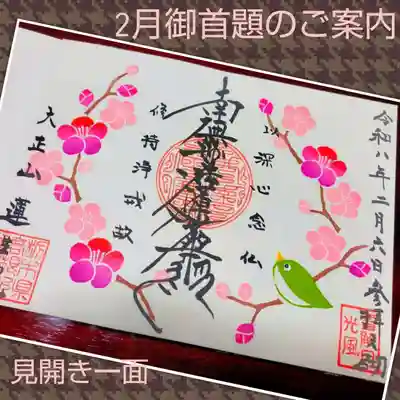 2月御首題のご案内
令和八年二月六日参拝
以深心念仏
南無妙法蓮華経
修持浄戒故
大正山
運
光風
見開き一面